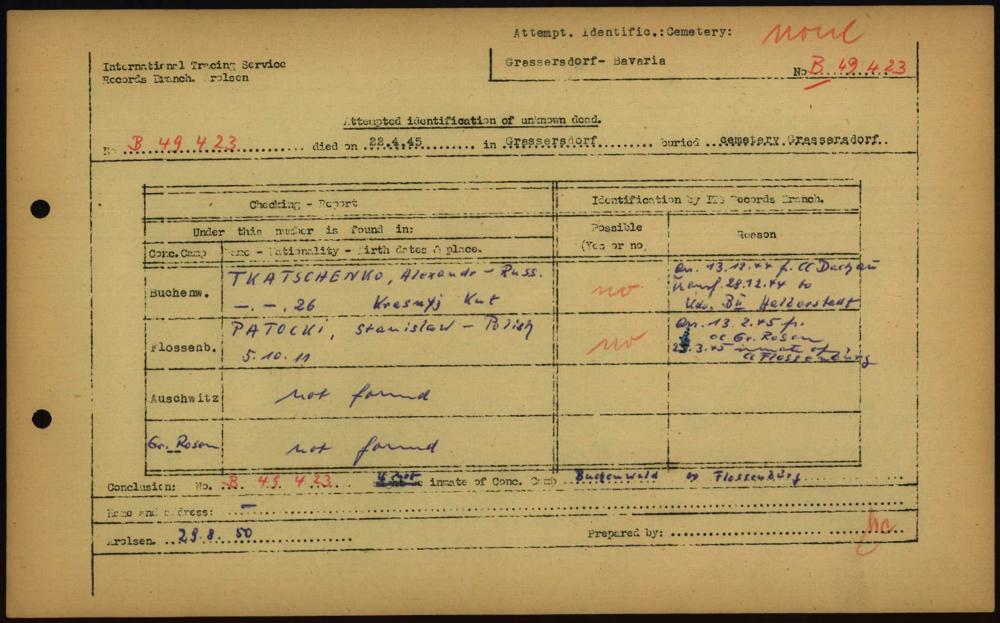 Attempt. Identific.: Cemetery:
none
Grassersdorf- Bavaria
No B. 49 423
International Tracing Service
Records Branch. Arolsen
Attempted identification of unknown dead.
No B 49 423 died on 22.4.45 in Grassersdorf buried cemetery Grassersdorf.
Checking - Report
Identification by ITS Records Branch.
Under this number is found in:
Possible (Yes or no)
Reason
Conc.Camp
Name - Nationality - Birth dates & place.
Buchenw.
TKATSCHENKO, Alexandr - Russ.
-.-.26 Krasnyj Kut
no
arr. 13.12.44 f. CC Dachau
transf. 28.12.44 to
Kdo. Bu Halberstadt
Flossenb.
PATOCKI, Stanislaw - Polish
5.10.11
no
arr. 13.2.45 fr.
CC Gr. Rosen
23.3.45 inmate of
CC Flossenbürg
Auschwitz
not found
Gr. Rosen
not found
Conclusion: No. B 49 423 is not inmate of Conc. Camp Buchenwald or Flossenbürg
Name and address: -
Arolsen. 29.8.50
Prepared by: